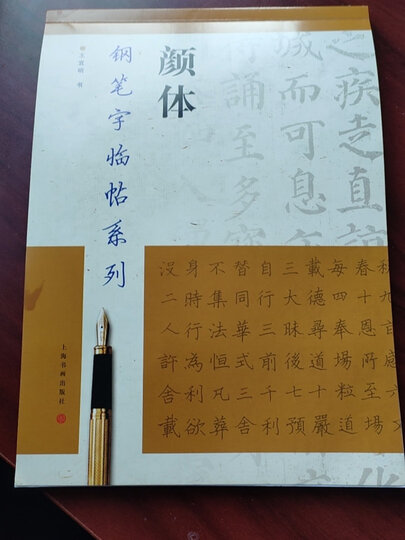 颜体
王宜明 书
钢笔字临帖系列
之疾走直
城而可息
誦至多寶
没身不替自三載每春秋
二時集同行大德四十九
人行法華三昧尋奉恩旨
許為恒式前後道場所感
舍利凡三千七十粒至六
載欲葬舍利預嚴道場又
上海书画出版社